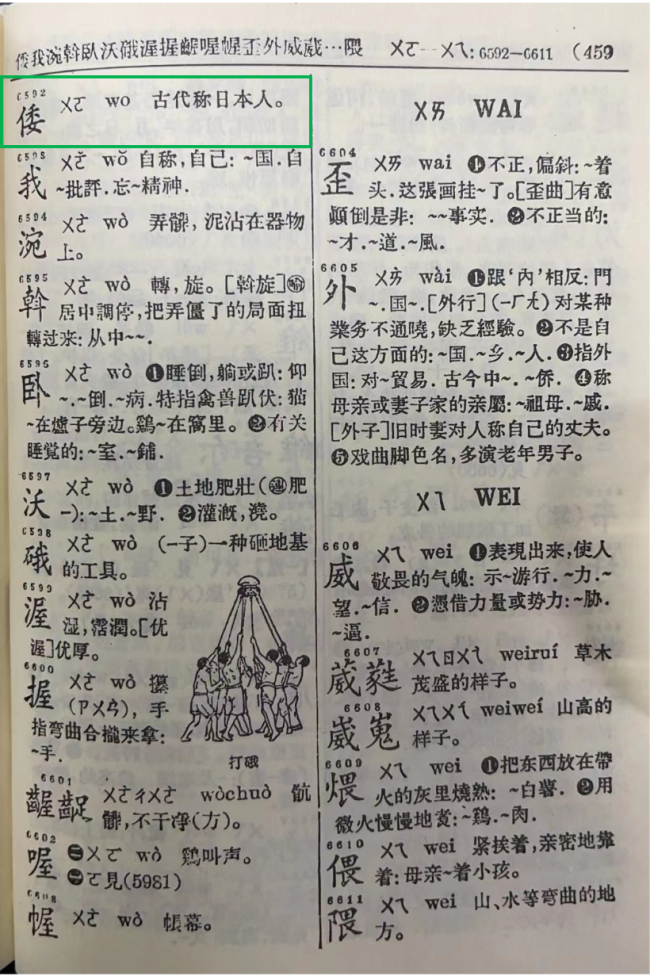 倭我涴斡臥沃硪渥握齷喔幄歪外威葳…隈 ㄨㄛ—ㄨㄟ: 6592—6611 (459
6592
倭 ㄨㄛ wo 古代称日本人。
我 ㄨㄛˇ wǒ 自称,自己: ~国.自
~批評.忘~精神.
6594
涴 ㄨㄛˋ wò 弄髒,泥沾在器物
上。
6595
斡 ㄨㄛˋ wò 轉,旋。[斡旋]
居中調停,把弄僵了的局面扭
轉过来: 从中~~.
6596
臥 ㄨㄛˋ wò ❶睡倒,躺或趴: 仰
~.~倒.~病.特指禽兽趴伏: 猫
~在爐子旁边。鷄~在窩里。❷有关
睡觉的: ~室.~鋪.
6597
沃 ㄨㄛˋ wò ❶土地肥壯(連肥
—): ~土.~野. ❷灌漑,澆。
6598
硪 ㄨㄛˋ wò (—子)一种砸地基
的工具。
6599
渥 ㄨㄛˋ wò 沾
湿,霑潤。[优
渥]优厚。
6600
握 ㄨㄛˋ wò 攥
(ㄗㄨㄢˋ), 手
指弯曲合攏来拿:
~手.
打硪
6601
齷齪 ㄨㄛˋㄔㄨㄛˋ wòchuò 骯
髒,不干凈(方)。
6602
喔 ㊀ㄨㄛ wò 鷄叫声。
㊁ㄛ見(5981)
幄 ㄨㄛˋ wò 帳幕。
ㄨㄞ WAI
6604
歪 ㄨㄞ wai ❶不正,偏斜: ~着
头.这張画挂~了。[歪曲]有意
顚倒是非: ~~事实. ❷不正当的:
~才.~道.~風.
6605
外 ㄨㄞˋ wài ❶跟‘內’相反: 門
~.国~.[外行](—ㄏㄤˊ)对某种
業务不通曉,缺乏經驗。❷不是自
己这方面的: ~国.~乡.~人.❸指外
国: 对~貿易. 古今中~.~侨. ❹称
母亲或妻子家的亲屬: ~祖母.~戚.
[外子]旧时妻对人称自己的丈夫。
❺戏曲脚色名,多演老年男子。
ㄨㄟ WEI
6606
威 ㄨㄟ wei ❶表現出来,使人
敬畏的气魄: 示~游行.~力.~
望.~信. ❷憑借力量或势力: ~胁.
~逼.
6607
葳蕤 ㄨㄟㄖㄨㄟˊ weiruí 草木
茂盛的样子。
6608
崴嵬 ㄨㄟㄨㄟˊ weiweí 山高的
样子。
6609
煨 ㄨㄟ wei ❶把东西放在帶
火的灰里燒熟: ~白薯. ❷用
微火慢慢地煑: ~鷄.~肉.
6610
偎 ㄨㄟ wei 紧挨着,亲密地靠
着: 母亲~着小孩。
6611
隈 ㄨㄟ wei 山、水等弯曲的地
方。